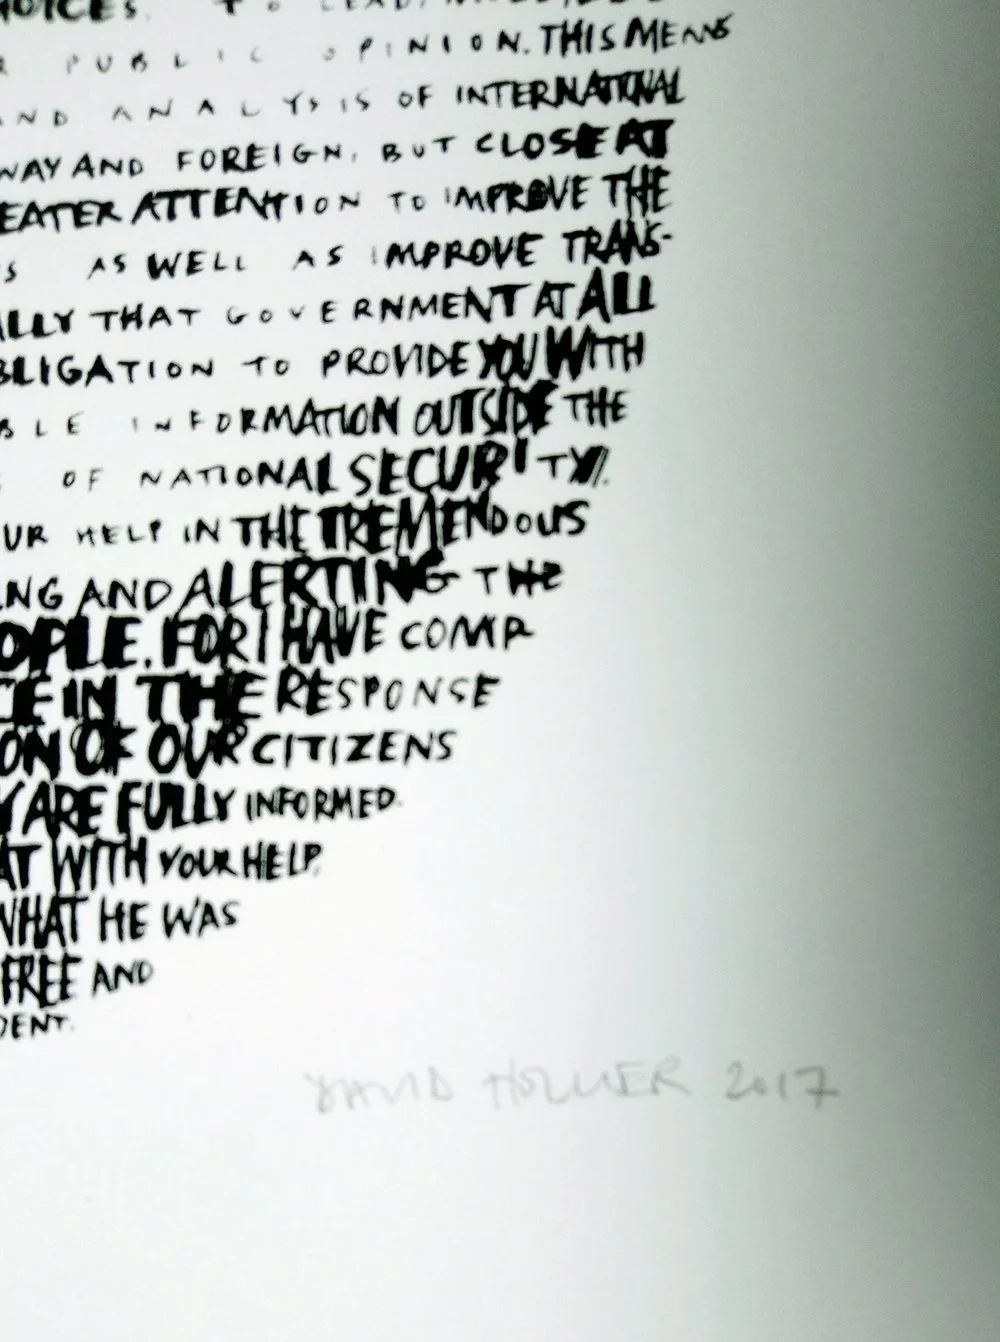 OICES. TO LEAD,
PUBLIC OPINION. THIS MEANS
ND ANALYSIS OF INTERNATIONAL
WAY AND FOREIGN, BUT CLOSE AT
EATER ATTENTION TO IMPROVE THE
S AS WELL AS IMPROVE TRANS-
LLY THAT GOVERNMENT AT ALL
BLIGATION TO PROVIDE YOU WITH
BLE INFORMATION OUTSIDE THE
OF NATIONAL SECURITY.
UR HELP IN THE TREMENDOUS
NG AND ALERTING THE
OPLE. FOR I HAVE COMP
CE IN THE RESPONSE
ON OF OUR CITIZENS
Y ARE FULLY INFORMED.
AT WITH YOUR HELP,
WHAT HE WAS
FREE AND
DENT.
DAVID HOLLIER 2017